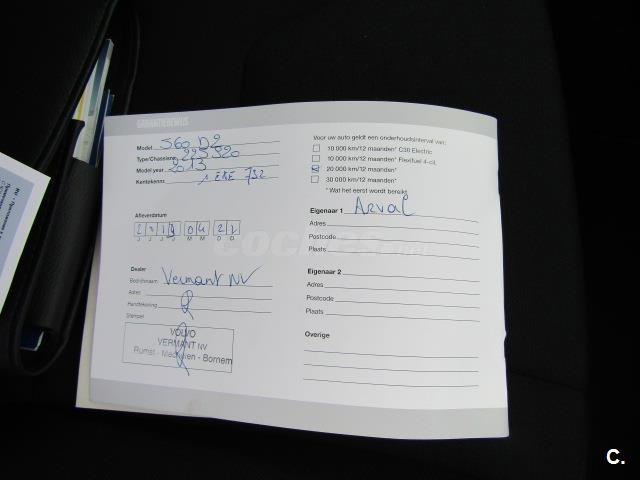 GARANTIEBEWIJS
Model S60 D2
Type/Chassisnr. 225520
Model year 2013
Kentekennr. 1 EKE 732
Afleverdatum
J J J J M M D D
Dealer
Bedrijfsnaam Vermant NV
Adres
Handtekening
Stempel
VOLVO
VERMANT NV
Rumst - Mechelen - Bornem
Voor uw auto geldt een onderhoudsinterval van:
10 000 km/12 maanden* C30 Electric
10 000 km/12 maanden* Flexifuel 4-cil.
20 000 km/12 maanden*
30 000 km/12 maanden*
* Wat het eerst wordt bereikt
Eigenaar 1 Arval
Adres
Postcode
Plaats
Eigenaar 2
Adres
Postcode
Plaats
Overige
COCHES.net
C.